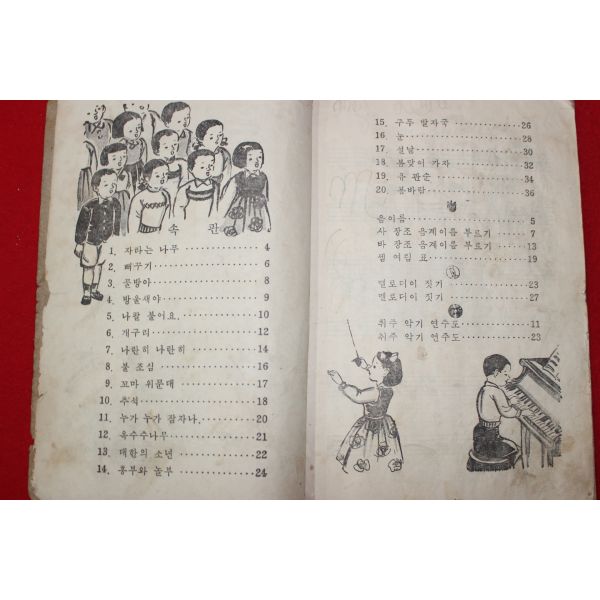 속 판
1. 자라는 나무 ············ 4
2. 뻐꾸기 ············ 6
3. 꿀방아 ············ 8
4. 방울새야 ············ 9
5. 나팔 불어요. ············ 10
6. 개구리 ············ 12
7. 나란히 나란히 ············ 14
8. 불 조심 ············ 16
9. 꼬마 위문대 ············ 17
10. 추석 ············ 18
11. 누가 누가 잠자나. ············ 20
12. 옥수수나무 ············ 21
13. 대한의 소년 ············ 22
14. 흥부와 놀부 ············ 24
15. 구두 발자국 ············ 26
16. 눈 ············ 28
17. 설날 ············ 30
18. 봄맞이 가자 ············ 32
19. 유 관순 ············ 34
20. 봄바람 ············ 36
음이름 ············ 5
사 장조 음계이름 부르기 ············ 7
바 장조 음계이름 부르기 ············ 13
셈 여림 표 ············ 19
멜로디이 짓기 ············ 23
멜로디이 짓기 ············ 27
취주 악기 연주도 ············ 11
취주 악기 연주도 ············ 23